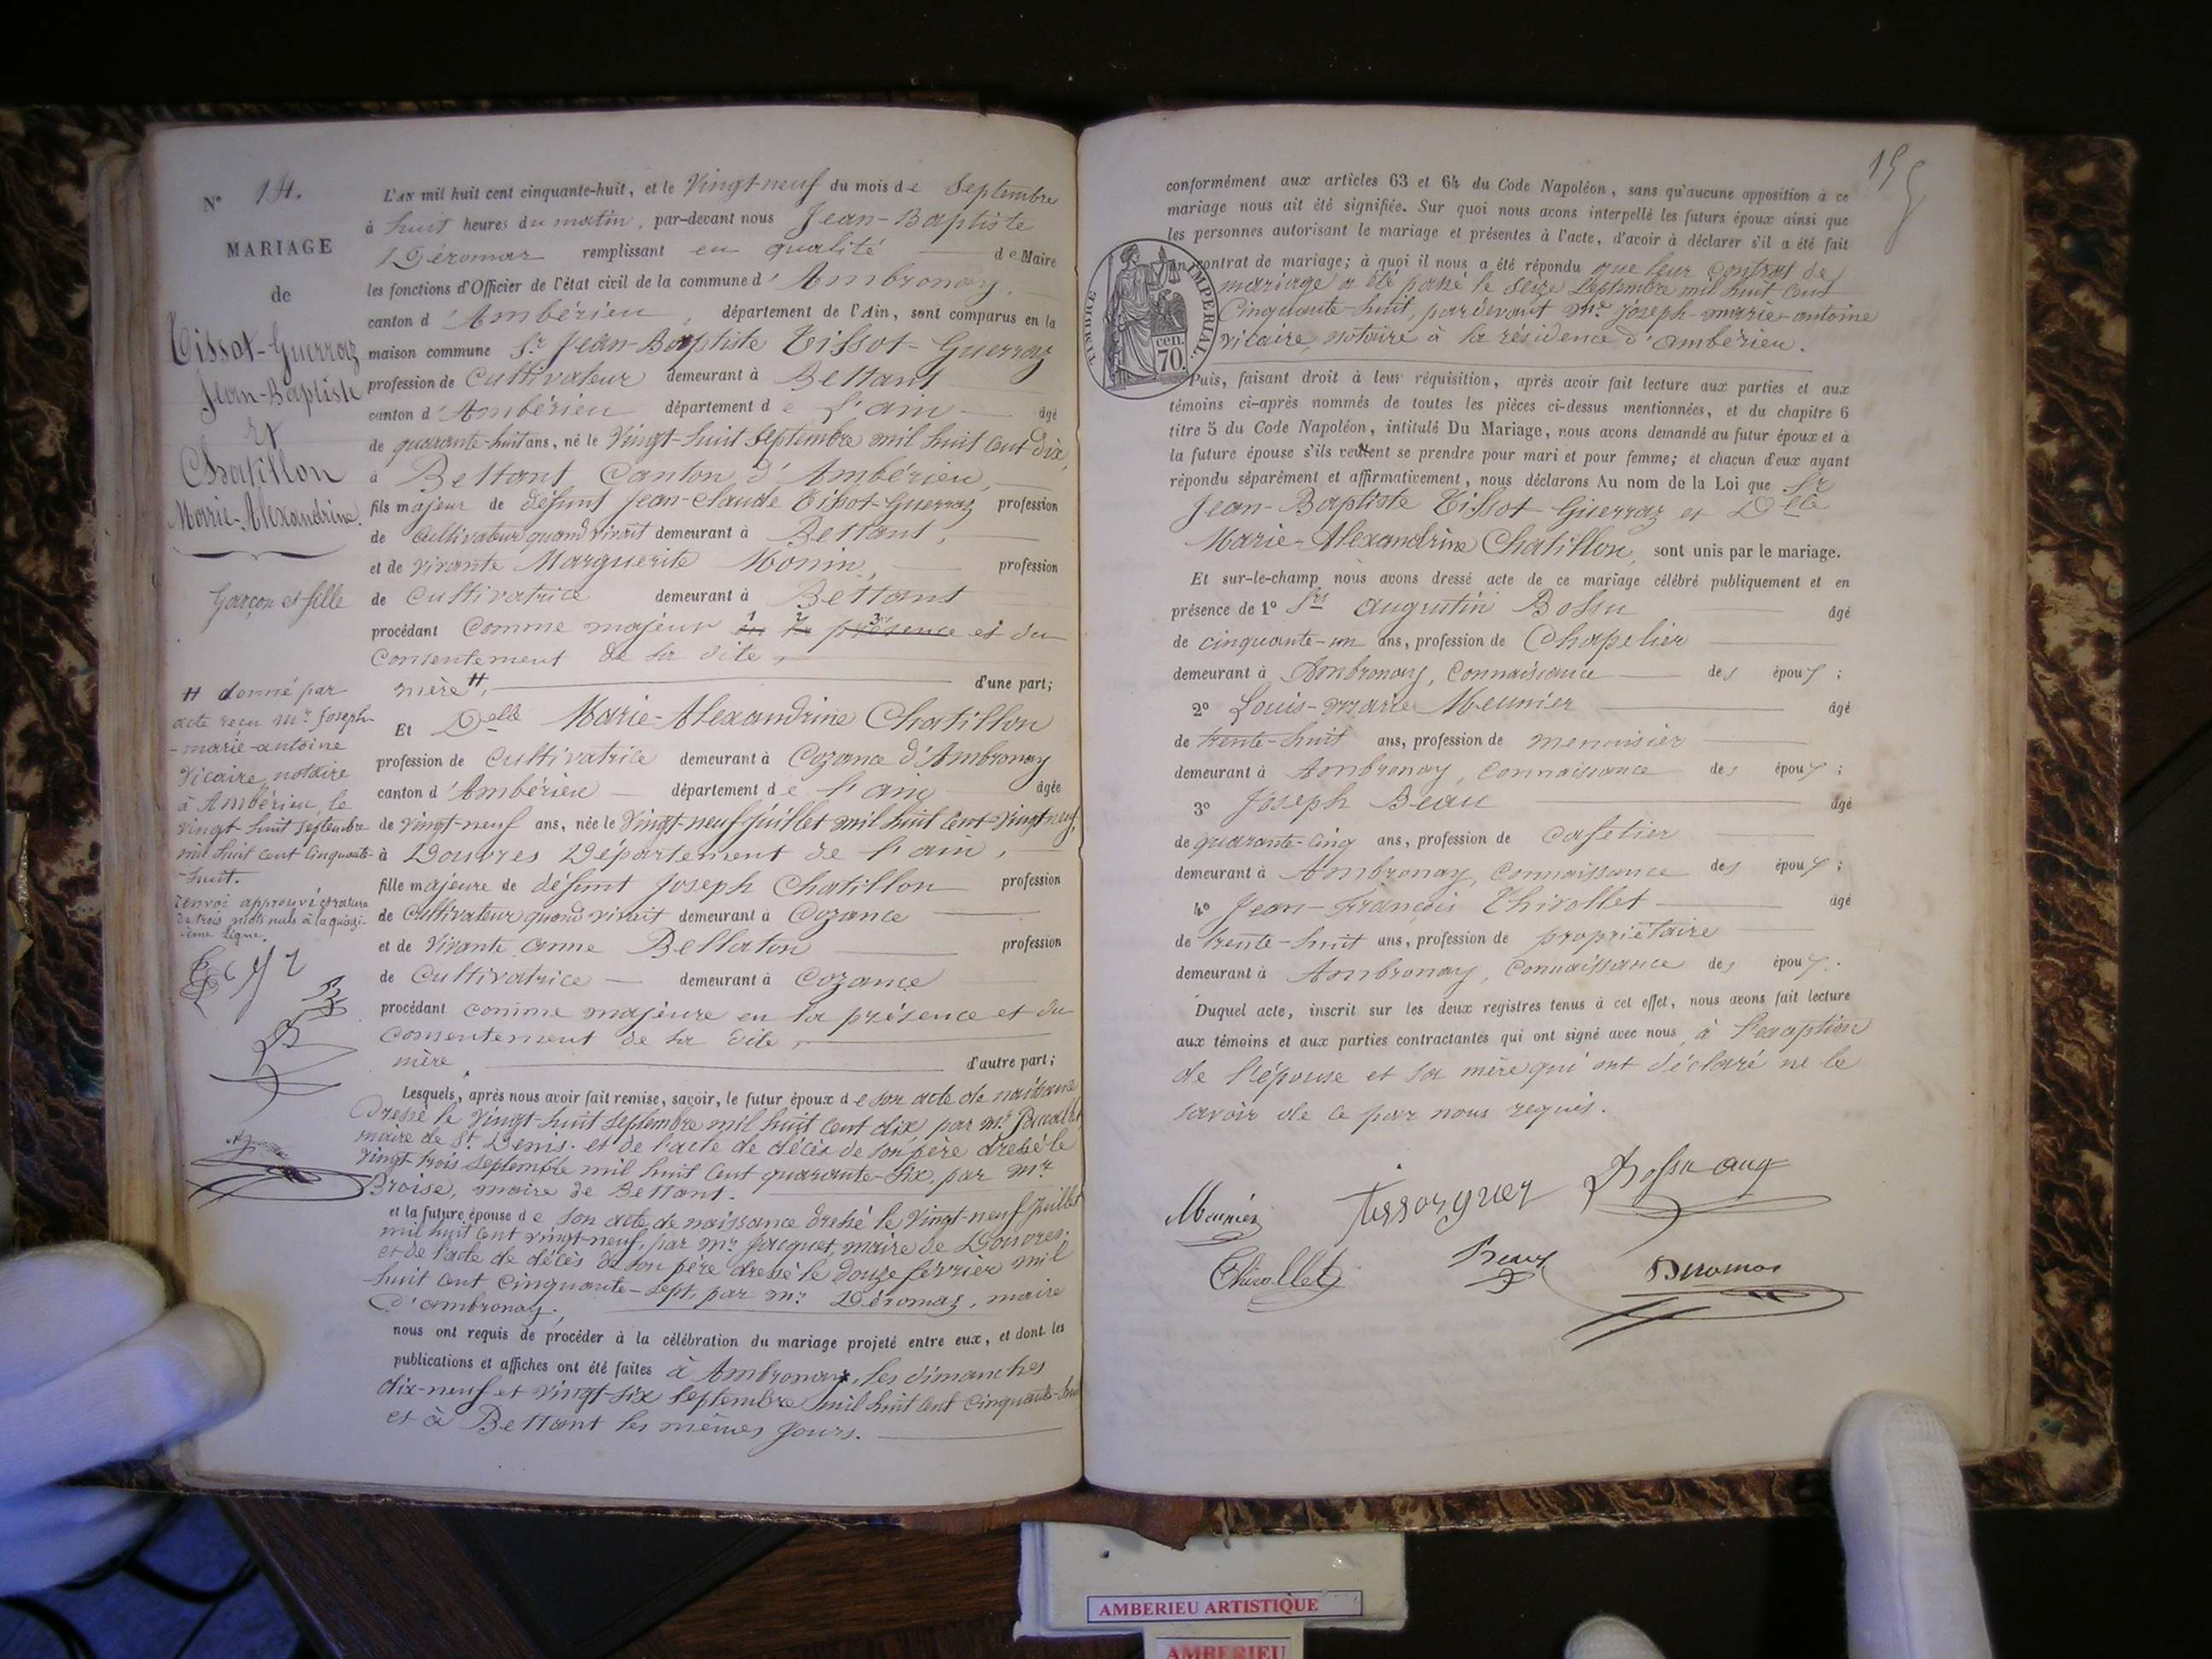 N° 14.
MARIAGE
de
Tissot-Guerraz
Jean-Baptiste
Et
Chatillon
Marie-Alexandrine.
garçon et fille
H donné par
acte reçu Mr. Joseph-
-marie-antoine
Vicaire, notaire
à Ambérieu, le
vingt-huit septembre
mil huit cent cinquante-
-huit.
renvoi approuvé et rature
de trois mots nuls à la quinzi-
-ème ligne.
L'AN mil huit cent cinquante-huit, et le Vingt-neuf du mois de Septembre
à huit heures du matin, par-devant nous Jean-Baptiste
Déromas remplissant en qualité de Maire
les fonctions d'Officier de l'état civil de la commune d'Ambronay,
canton d'Ambérieu, département de l'Ain, sont comparus en la
maison commune Sr. Jean-Baptiste Tissot-Guerraz
profession de Cultivateur demeurant à Bettant
canton d'Ambérieu département de l'ain âgé
de quarante-huit ans, né le Vingt-huit Septembre mil huit cent dix,
à Bettant, Canton d'Ambérieu,
fils majeur de défunt Jean-Claude Tissot-Guerraz profession
de Cultivateur quand vivait demeurant à Bettant,
et de vivante Marguerite Monin, profession
de Cultivatrice demeurant à Bettant
procédant Comme majeur en la présence et du
Consentement de sa dite
mère H. d'une part;
Et Delle Marie-Alexandrine Chatillon
profession de Cultivatrice demeurant à Cozance d'Ambronay
canton d'Ambérieu département de l'ain âgée
de vingt-neuf ans, née le Vingt-neuf Juillet mil huit cent vingt neuf,
à Douvres Département de l'ain,
fille majeure de défunt Joseph Chatillon profession
de Cultivateur quand vivait demeurant à Cozance
et de vivante anne Bellaton profession
de Cultivatrice demeurant à Cozance
procédant comme majeure en la présence et du
Consentement de sa dite
mère d'autre part;
Lesquels, après nous avoir fait remise, savoir, le futur époux de son acte de naissance
dressé le Vingt-huit Septembre mil huit cent dix, par Mr.
maire de St. Denis. et de l'acte de décès de son père dressé le
vingt trois Septembre mil huit cent quarante-six, par Mr.
Broise, maire de Bettant.
et la future épouse de son acte de naissance dressé le Vingt-neuf Juillet
mil huit cent vingt-neuf, par Mr. Jacquet, maire de Douvres.
et de l'acte de décès de son père dressé le douze février mil
huit cent cinquante-sept, par Mr. Déromas, maire
d'ambronay,
nous ont requis de procéder à la célébration du mariage projeté entre eux, et dont les
publications et affiches ont été faites à Ambronay, les dimanches
dix-neuf et vingt-six Septembre mil huit cent cinquante-huit
et à Bettant les mêmes jours.
155
conformément aux articles 63 et 64 du Code Napoléon, sans qu'aucune opposition à ce
mariage nous ait été signifiée. Sur quoi nous avons interpellé les futurs époux ainsi que
les personnes autorisant le mariage et présentes à l'acte, d'avoir à déclarer s'il a été fait
un contrat de mariage; à quoi il nous a été répondu que leur Contrat de
mariage a été passé le Seize Septembre mil huit cent
Cinquante-huit, pardevant Mr. Joseph-marie-antoine
vicaire, notaire à la résidence d'ambérieu.
TIMBRE IMPERIAL.
cen. 70.
Puis, faisant droit à leur réquisition, après avoir fait lecture aux parties et aux
témoins ci-après nommés de toutes les pièces ci-dessus mentionnées, et du chapitre 6
titre 5 du Code Napoléon, intitulé Du Mariage, nous avons demandé au futur époux et à
la future épouse s'ils veulent se prendre pour mari et pour femme; et chacun d'eux ayant
répondu séparément et affirmativement, nous déclarons Au nom de la Loi que Sr
Jean-Baptiste Tissot Guerraz et Delle
Marie-Alexandrine Chatillon, sont unis par le mariage.
Et sur-le-champ nous avons dressé acte de ce mariage célébré publiquement et en
présence de 1° Srs augustin Bossu âgé
de cinquante-un ans, profession de Chapelier
demeurant à Ambronay, Connaissance des époux;
2° Louis-marie Meunier âgé
de trente-huit ans, profession de menuisier
demeurant à Ambronay, Connaissance des époux;
3° Joseph Beau âgé
de quarante-cinq ans, profession de cafetier
demeurant à Ambronay, Connaissance des époux;
4° Jean-François Thivollet âgé
de trente-huit ans, profession de propriétaire
demeurant à Ambronay, Connaissance des époux.
Duquel acte, inscrit sur les deux registres tenus à cet effet, nous avons fait lecture
aux témoins et aux parties contractantes qui ont signé avec nous, à l'exception
de l'épouse et sa mère qui ont déclaré ne le
savoir de ce par nous requis.
Meunier Tissotguer Bossu aug
Thivollet Beau Deromas
AMBERIEU ARTISTIQUE
AMBERIEU